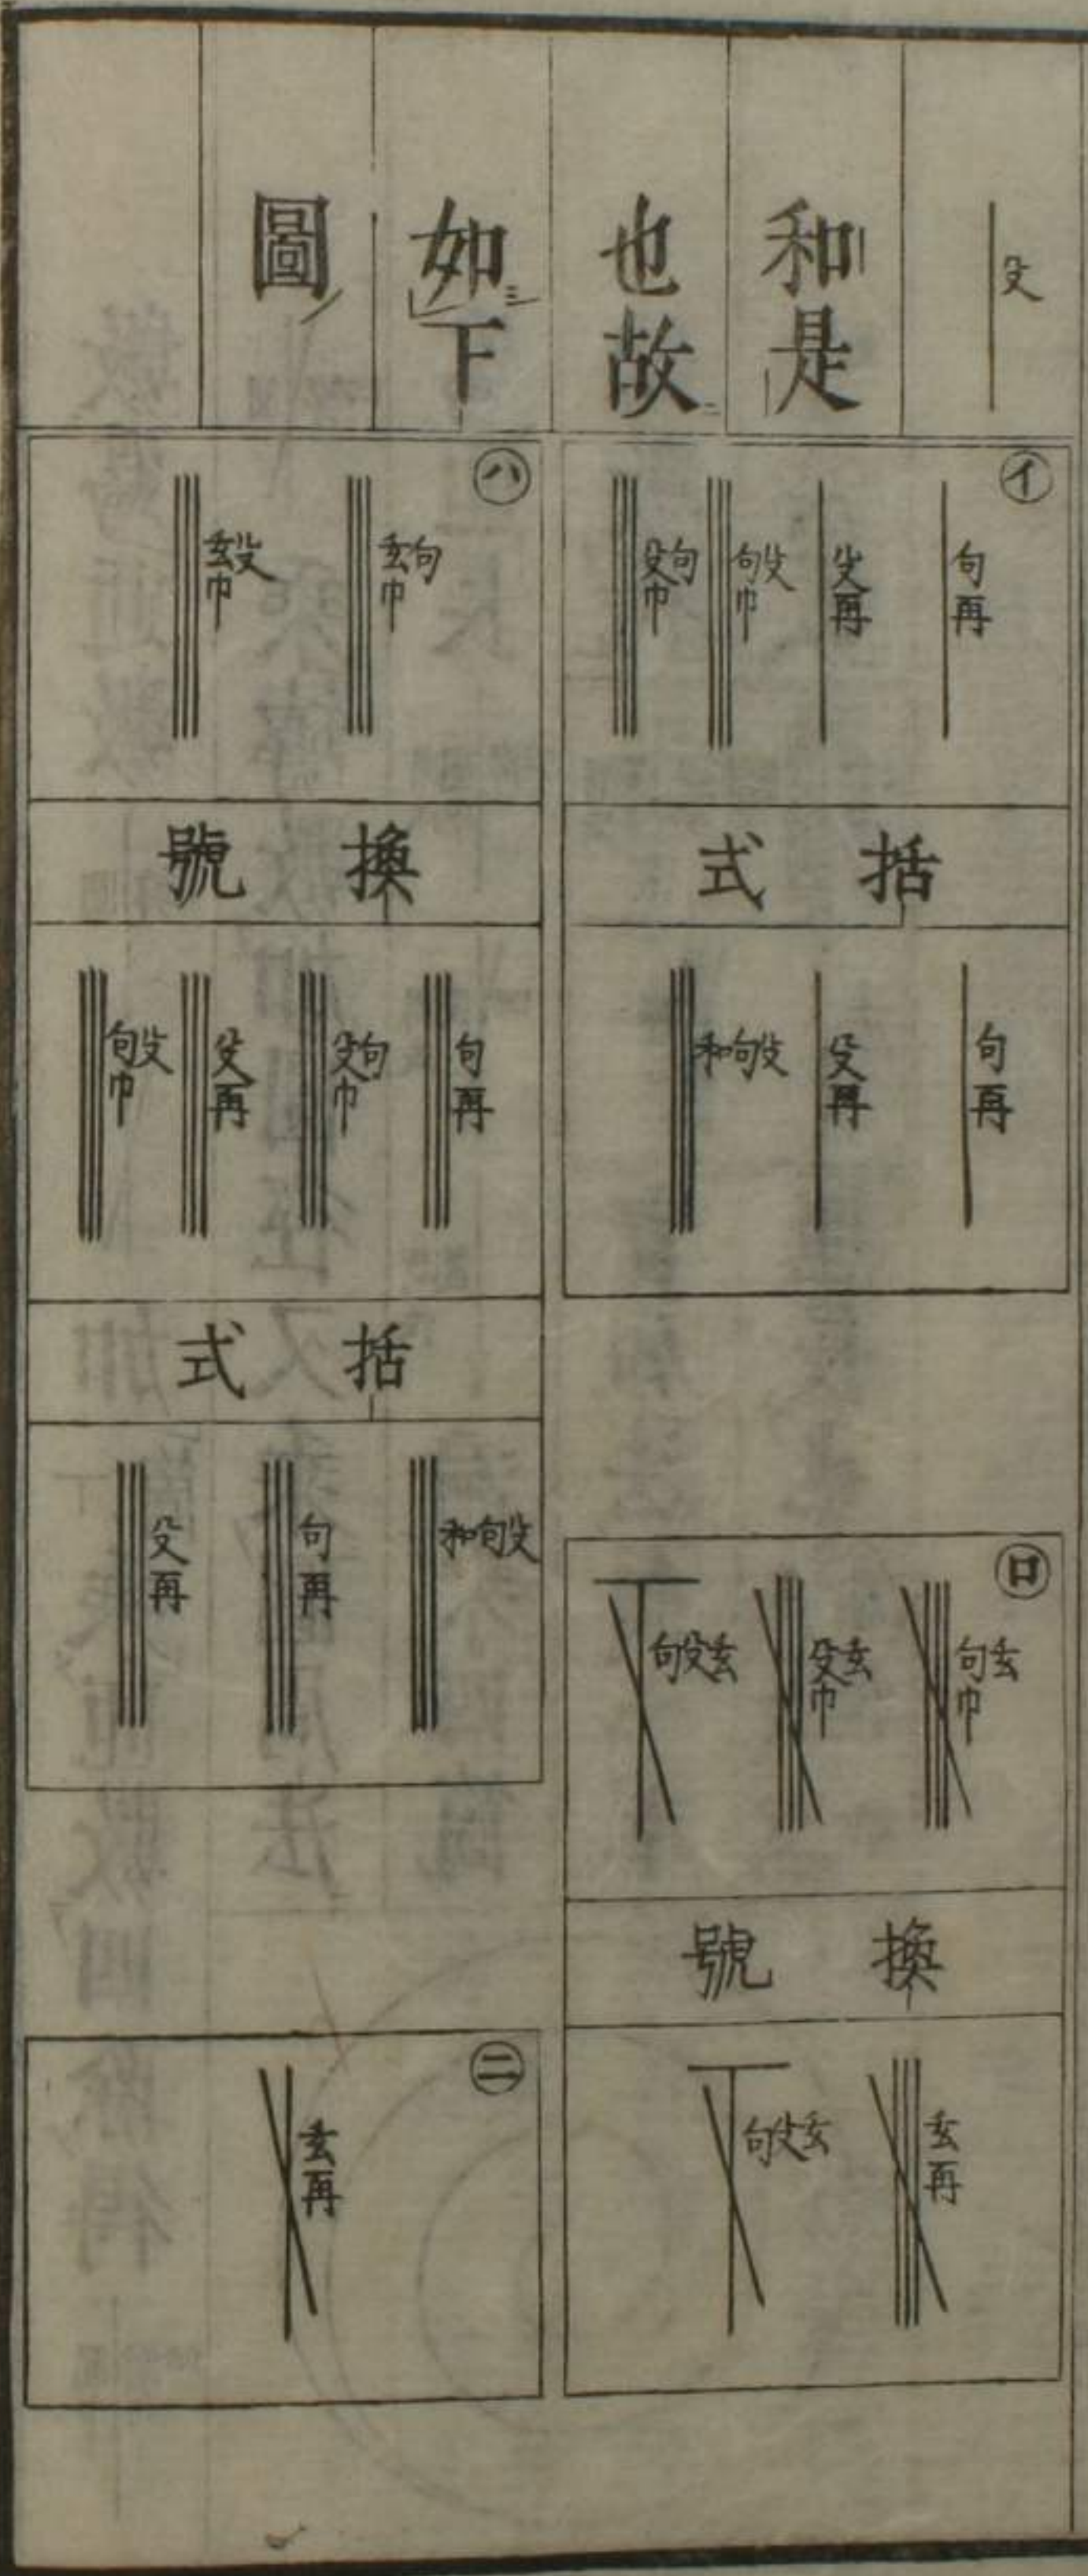 殳
和是
也故
如下
圖
イ
句再
殳再
句殳巾
殳句巾
括式
句再
殳再
和句殳
ロ
句玄巾
殳玄巾
句殳玄
換號
玄再
句殳玄
ハ
玄句巾
玄殳巾
換號
句再
殳句巾
殳再
句殳巾
括式
和句殳
句再
殳再
ニ
玄再